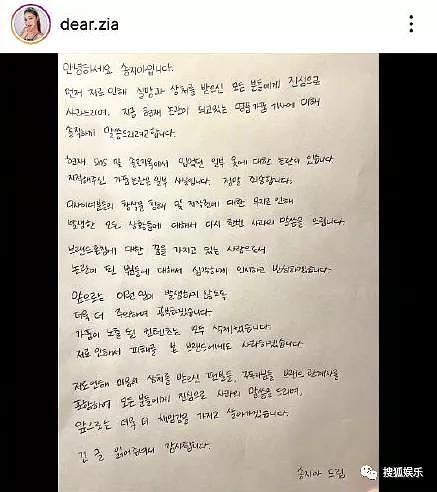 dear.zia
안녕하세요 송지아입니다.
먼저 저로 인해 실망과 상처를 받으신 모든 분들에게 진심으로
사과드리며, 지금 현재 논란이 되고있는 명품가품 기사에 대해
솔직하게 말씀드리려고합니다.
현재 SNS 및 솔로지옥에서 입었던 일부 옷에 대한 논란이 있습니다
지적해주신 가품논란은 일부 사실입니다. 정말 죄송합니다.
디자이너분들의 창작물 침해 및 저작권에 대한 무지로 인해
발생한 모든 상황들에 대해서 다시 한번 사과의 말씀을 드립니다.
브랜드론칭에 대한 꿈을 가지고 있는 사람으로서
논란이 된 부분들에 대해서 심각하게 인지하고 반성하겠습니다.
앞으로는 이런 일이 발생하지 않도록
더욱 더 주의하며 공부하겠습니다.
가품이 노출 된 컨텐츠는 모두 삭제했습니다.
저로 인해서 피해를 본 브랜드에게도 사과하겠습니다.
저로인해 마음의 상처를 받으신 팬분들, 구독자분들 브랜드 관계자를
포함하여 모든 분들에게 진심으로 사과의 말씀을 드리며,
앞으로는 더욱 더 책임감을 가지고 살아가겠습니다.
긴 글 읽어주셔서 감사합니다.
송지아 드림
搜狐娱乐